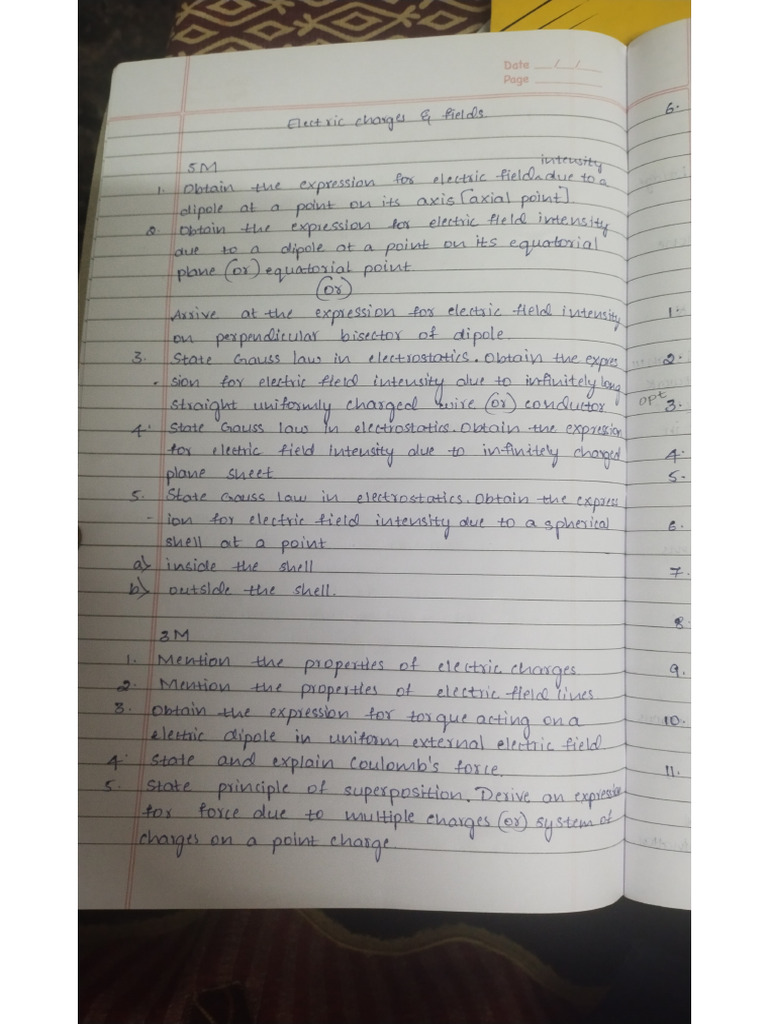 Date __/__/__
Page
Electric charges & fields.
5M
intensity
1. Obtain the expression for electric field ^ due to a
dipole at a point on its axis [axial point]
2. Obtain the expression for electric field intensity
due to a dipole at a point on its equatorial
plane (or) equatorial point.
(or)
Arrive at the expression for electric field intensity
on perpendicular bisector of dipole.
3. State Gauss law in electrostatics. Obtain the expres
- sion for electric field intensity due to infinitely long
straight uniformly charged wire (or) conductor
4. State Gauss law in electrostatics. Obtain the expression
for electric field intensity due to infinitely charged
plane sheet
5. State Gauss law in electrostatics. Obtain the express
- ion for electric field intensity due to a spherical
shell at a point
a) inside the shell
b) outside the shell.
3M
1. Mention the properties of electric charges.
2. Mention the properties of electric field lines
3. Obtain the expression for torque acting on a
electric dipole in uniform external electric field
4. State and explain Coulomb's force.
5. State principle of superposition. Derive an expression
for force due to multiple charges (or) system of
charges on a point charge.
6.
1.
2.
opt
3.
4.
5.
6.
7.
8.
9.
10.
11.